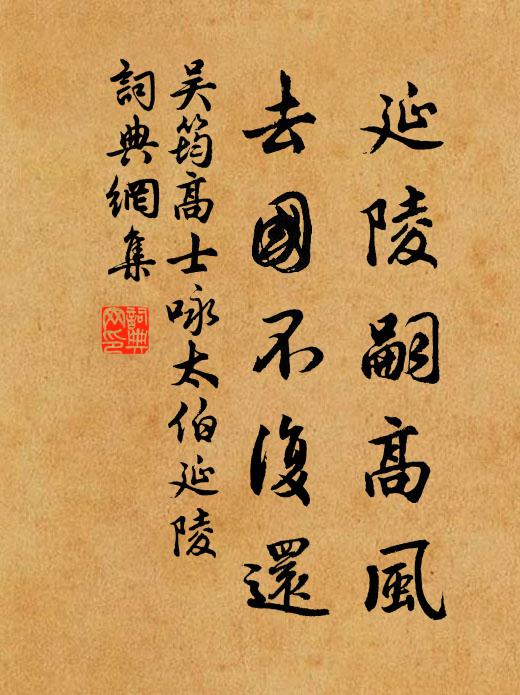 延陵嗣高風
去國不復還
吴筠高士咏太伯延陵
詞典網集
詞典
网印